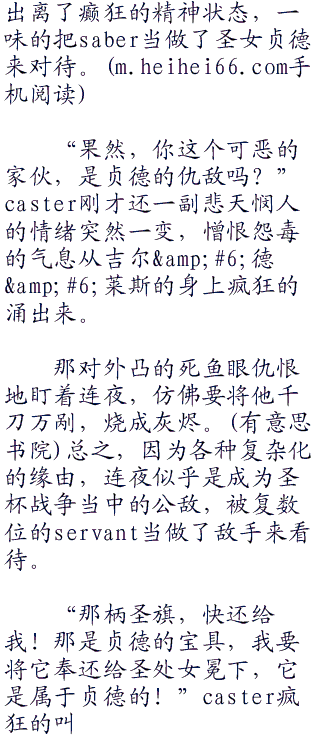 出离了癫狂的精神状态，一
味的把saber当做了圣女贞德
来对待。(m.heihei66.com手
机阅读)
“果然，你这个可恶的
家伙，是贞德的仇敌吗？”
caster刚才还一副悲天悯人
的情绪突然一变，憎恨怨毒
的气息从吉尔&amp;#6;德
&amp;#6;莱斯的身上疯狂的
涌出来。
那对外凸的死鱼眼仇恨
地盯着连夜，仿佛要将他千
刀万剐，烧成灰烬。(有意思
书院)总之，因为各种复杂化
的缘由，连夜似乎是成为圣
杯战争当中的公敌，被复数
位的servant当做了敌手来看
待。
“那柄圣旗，快还给
我！那是贞德的宝具，我要
将它奉还给圣处女冕下，它
是属于贞德的！”caster疯
狂的叫